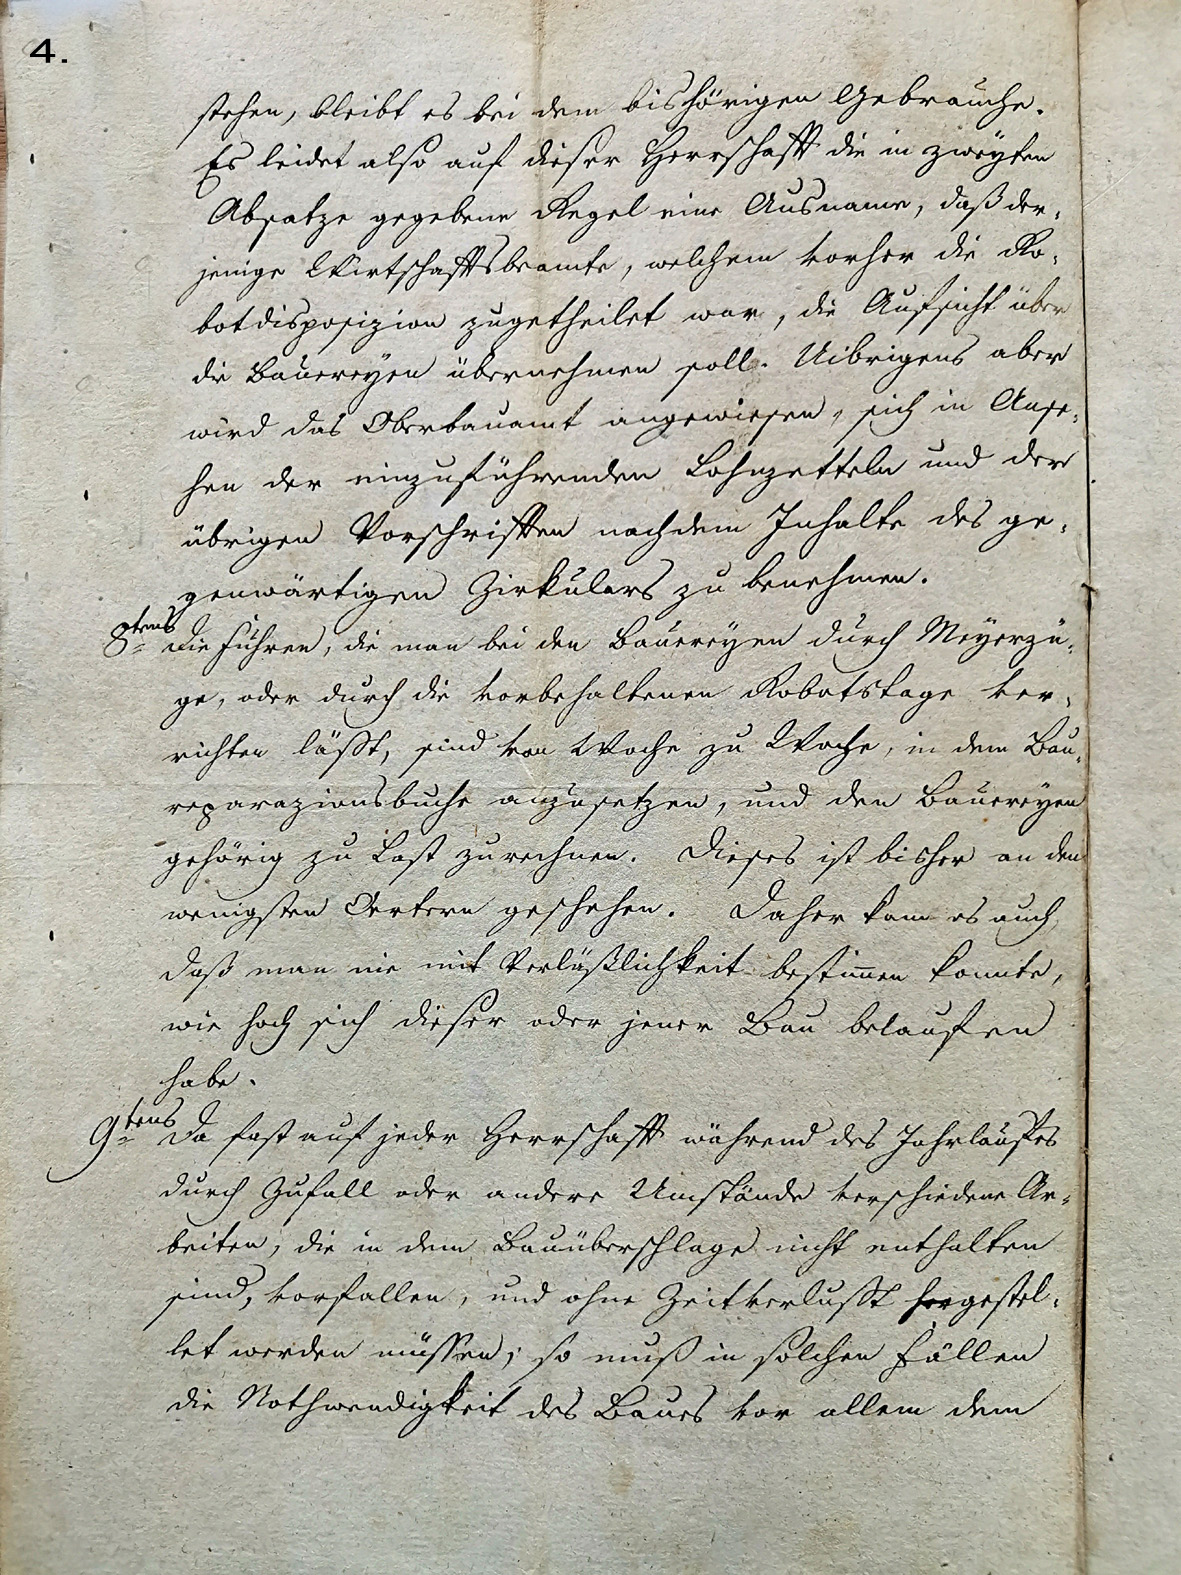 4.
stehen, bleibt es bei dem bishörigen Gebrauche.
Es leidet also auf dieser Herrschafft die in zweyten
Absatze gegebene Regel eine Ausname, daß der,
jenige Wirtschafftsbeamte, welchem vorher die Ro,
botdisposizion zugetheilet war, die Aufsicht über
die Bauereyen übernehmen soll. Uibrigens aber
wird das Oberbauamt angewiesen, sich in Anse,
hen der einzuführenden Lohnzetteln und der
übrigen Vorschrifften nach dem Inhalte des ge,
genwärtigen Zirkulars zu benehmen.
8tens Die Fuhren, die man bei den Bauereyen durch Meyerzü,
ge, oder durch die vorbehaltenen Robotstage ver,
richten läßt, sind von Woche zu Woche, in dem Bau,
reparazionsbuche anzusetzen, und den Bauereyen
gehörig zu Last zurechnen. Dieses ist bisher an den
wenigsten Oertern geschehen. Daher kam es auch
daß man nie mit Verläßlichkeit bestim̅en konnte,
wie hoch sich dieser oder jener Bau belaufen
habe.
9tens Da fast auf jeder Herrschafft während des Jahrlaufes
durch Zufall oder andere Umstände verschiedene Ar,
beiten, die in dem Bauüberschlage nicht enthalten
sind, vorfallen, und ohne Zeitverlusst hergestel,
let werden müssen; so muß in solchen Fällen
die Nothwendigkeit des Baues vor allem dem